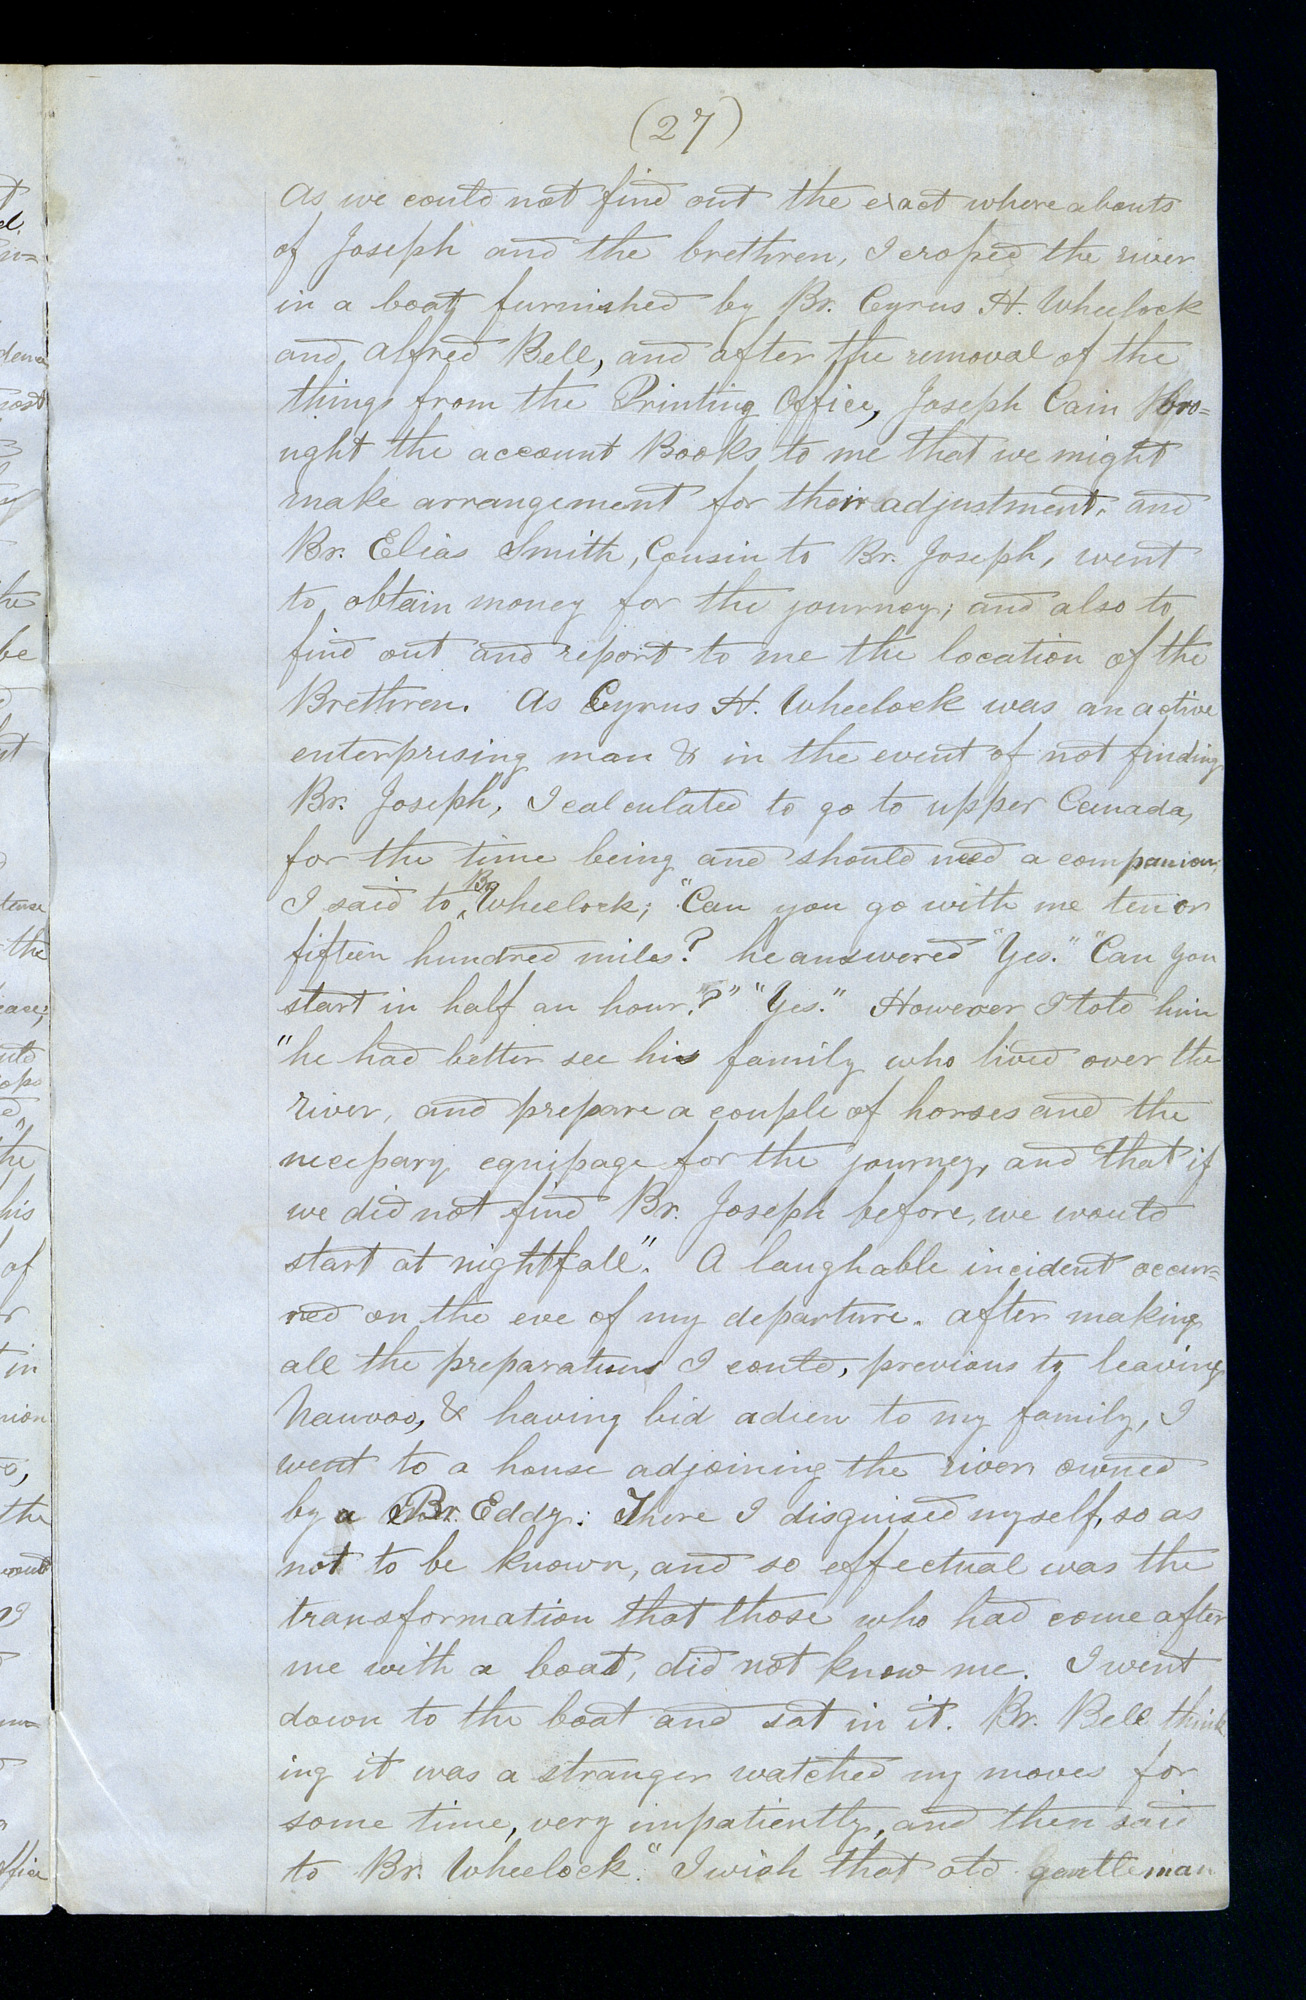 (27)
As we could not find out the exact where abouts
of Joseph and the brethren, I crossed the river
in a boat furnished by Br. Cyrus H. Wheelock
and Alfred Bell, and after the removal of the
things from the Printing Office, Joseph Cain bro=
ught the account Books to me that we might
make arrangement for their adjustment. and
Br. Elias Smith, Cousin to Br. Joseph, went
to obtain money for the journey; and also to
find out and report to me the location of the
Brethren. As Cyrus H. Wheelock was an active
enterprising man & in the event of not finding
Br. Joseph, I calculated to go to upper Canada,
for the time being and should need a companion,
I said to Br Wheelock; "Can you go with me ten or
fifteen hundred miles? he answered "Yes." "Can you
start in half an hour?" "Yes." However I told him
"he had better see his family who lived over the
river, and prepare a couple of horses and the
necessary equipage for the journey, and that if
we did not find Br. Joseph before, we would
start at nightfall". A laughable incident occur=
red on the eve of my departure. after making
all the preparations I could, previous to leaving
Nauvoo, & having bid adieu to my family, I
went to a house adjoining the river owned
by a Br. Eddy: There I disguised myself, so as
not to be known, and so effectual was the
transformation that those who had come after
me with a boat, did not know me. I went
down to the boat and sat in it. Br. Bell think
ing it was a stranger watched my moves for
some time, very impatiently, and then said
to Br. Wheelock" I wish that old gentleman